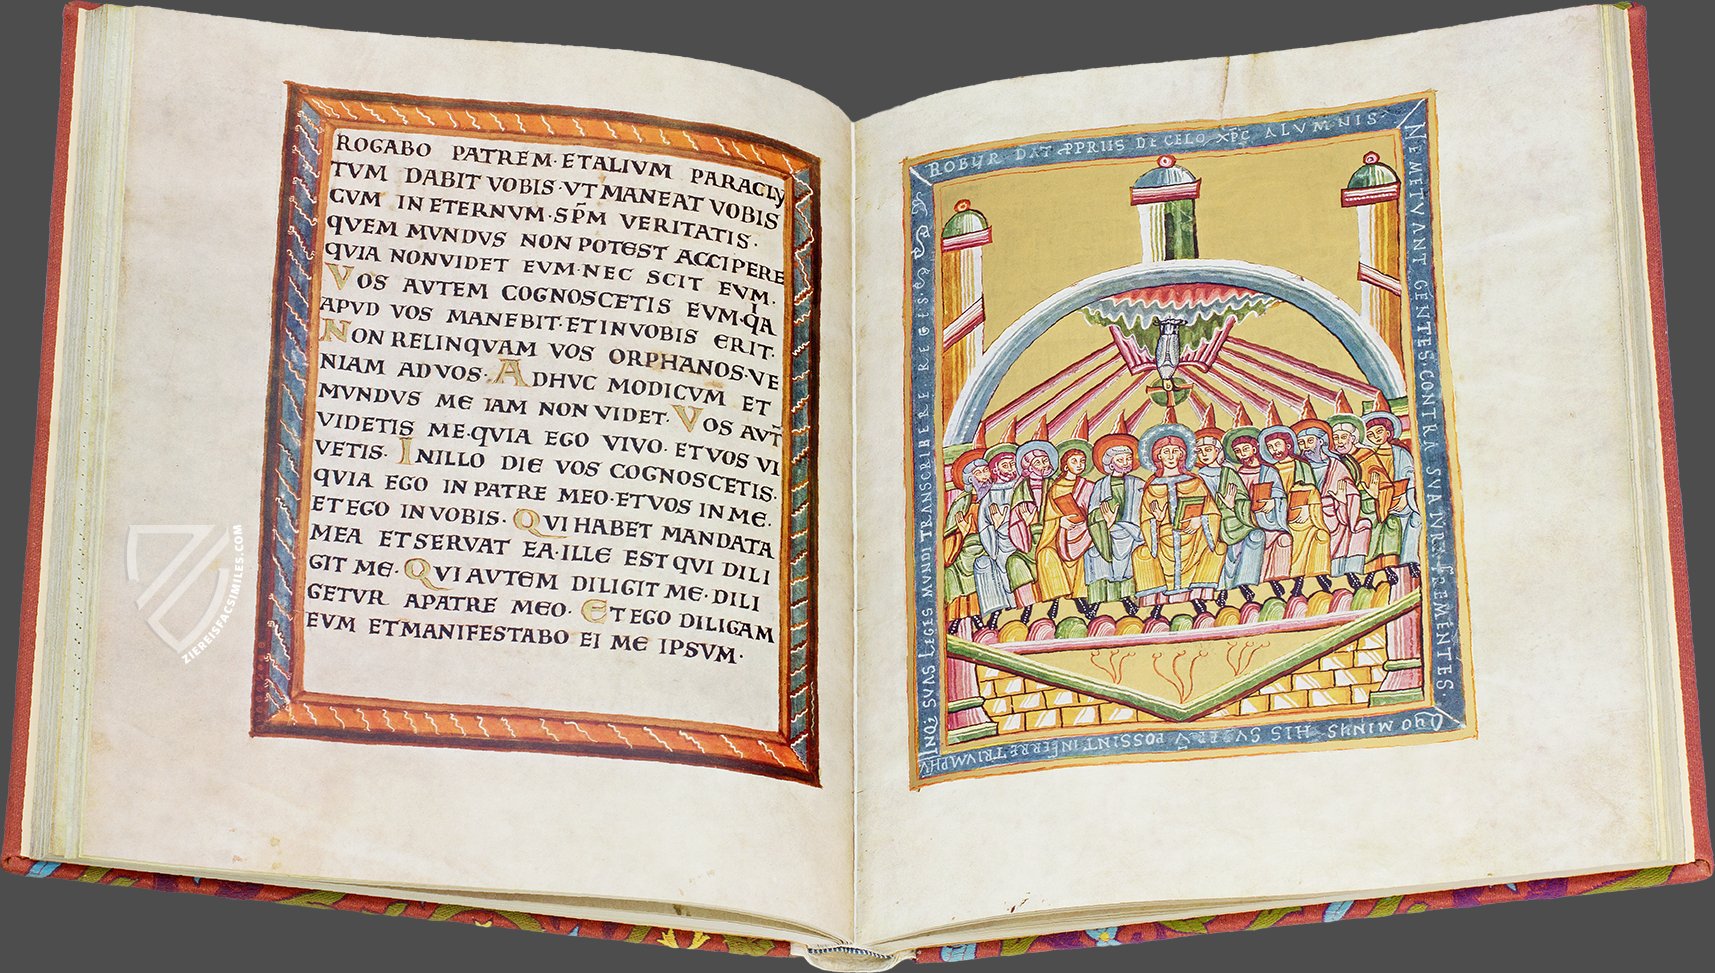 ROGABO PATREM·ET ALIVM PARACLY
TVM DABIT VOBIS·VT MANEAT VOBIS
CVM IN ETERNVM·SP̄M VERITATIS·
QVEM MVNDVS NON POTEST ACCIPERE
QVIA NON VIDET EVM·NEC SCIT EVM·
VOS AVTEM COGNOSCETIS EVM·QꞮA
APVD VOS MANEBIT·ET IN VOBIS ERIT·
NON RELINQVAM VOS ORPHANOS·VE
NIAM AD VOS·ADHVC MODICVM ET
MVNDVS ME IAM NON VIDET·VOS AVT̄
VIDETIS ME·QVIA EGO VIVO·ET VOS VI
VETIS·IN ILLO DIE VOS COGNOSCETIS·
QVIA EGO IN PATRE MEO·ET VOS IN ME·
ET EGO IN VOBIS·QVI HABET MANDATA
MEA ET SERVAT EA·ILLE EST QVI DILI
GIT ME·QVI AVTEM DILIGIT ME·DILI
GETVR A PATRE MEO·ET EGO DILIGAM
EVM ET MANIFESTABO EI ME IPSVM·
ZIEREISFACSIMILES.COM
ROBVR DAT PPRIIS DE CELO XP̄C ALVMNIS·
NE METVANT GENTES·CONTRA SVA IVRA FREMENTES·
QVO MINVS HIS SVPER V̄ POSSINT INFERRE TRIVMPHV̄
INQ; SVAS LEGES MVNDI TRANSCRIBERE REGES·